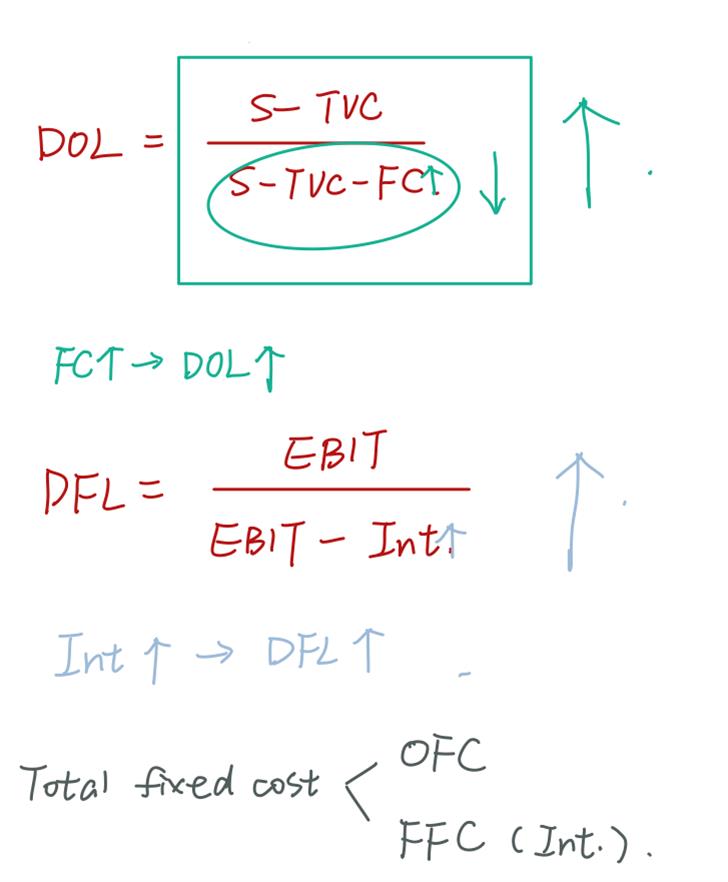 DOL = S - TVC
S - TVC - FC↑ ↓ ↑ .
FC↑ → DOL↑
DFL = EBIT
EBIT - Int.↑ ↑ .
Int ↑ → DFL ↑ -
Total fixed cost < OFC
FFC (Int.) .